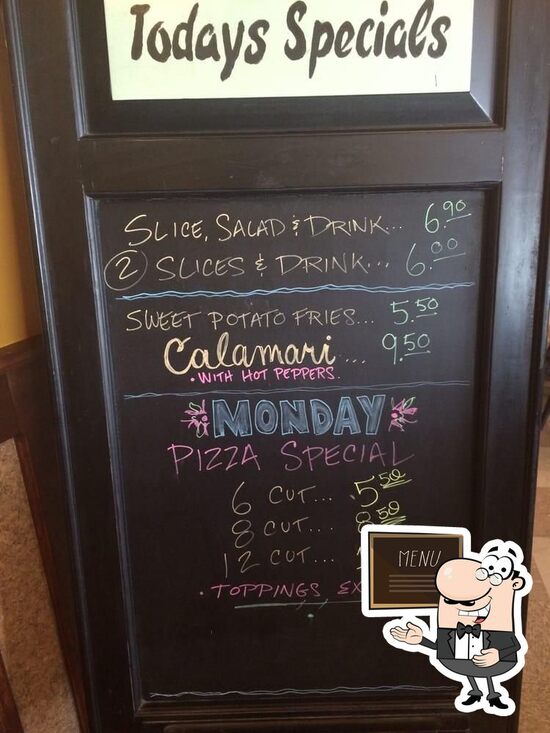 Todays Specials
SLICE, SALAD & DRINK... 6.90
2 SLICES & DRINK... 6.00
SWEET POTATO FRIES... 5.50
Calamari... 9.50
• WITH HOT PEPPERS.
MONDAY
PIZZA SPECIAL
6 CUT... 5.50
8 CUT... 8.50
12 CUT...
• TOPPINGS
MENU